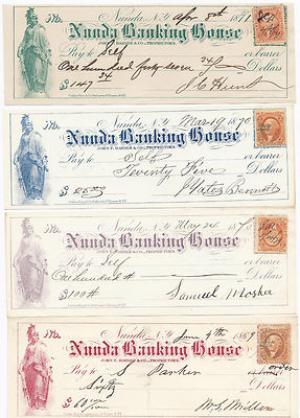 Nunda, N.Y. Apr 8th 1871
No.
Nunda Banking House
JOHN F. BARBER & CO., PROPRIETORS.
Pay to Self or bearer
One hundred forty seven 34/ Dollars
$ 147 34 J C Hunt
Nunda, N.Y. Mar 19 1870
No.
Nunda Banking House
JOHN F. BARBER & CO., PROPRIETORS.
Pay to Self or bearer
Seventy Five Dollars
$ Yates Bennett
Nunda, N.Y. May 24 1870
No.
Nunda Banking House
JOHN F. BARBER & CO., PROPRIETORS.
Pay to Self or bearer
One hundred # Dollars
$ 100 # Samuel Mosher
Nunda, N.Y. June 9th 1869
No.
Nunda Banking House
JOHN F. BARBER & CO., PROPRIETORS.
Pay to S Parker or order
Sixty Dollars
$ 60